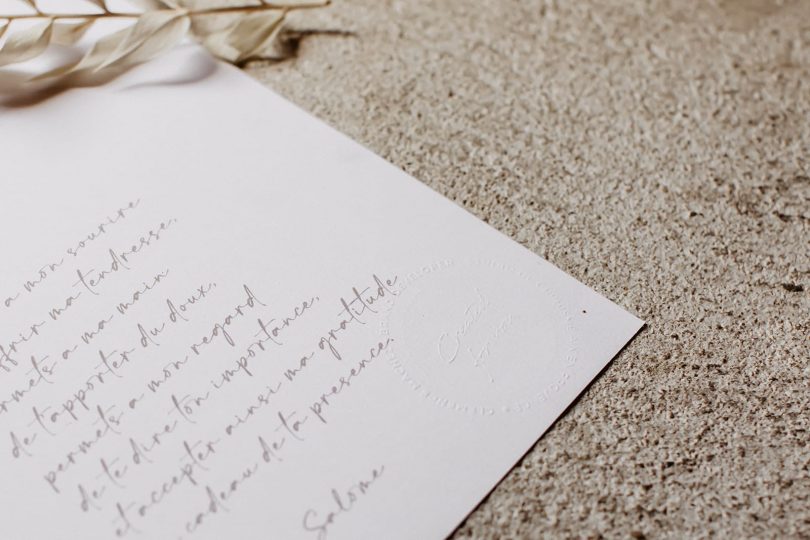 a mon sourire
ffrir ma tendresse,
ermets a ma main
de t'apporter du doux,
permets a mon regard
de te dire ton importance,
et accepter ainsi ma gratitude
cadeau de ta presence.
Salome